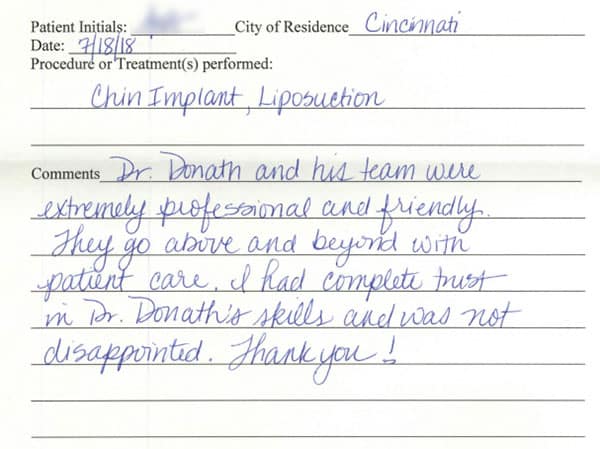 Patient Initials: City of Residence Cincinnati
Date: 7/18/18
Procedure or Treatment(s) performed:
Chin Implant, Liposuction
Comments Dr. Donath and his team were
extremely professional and friendly.
They go above and beyond with
patient care. I had complete trust
in Dr. Donath's skills and was not
disappointed. Thank you!